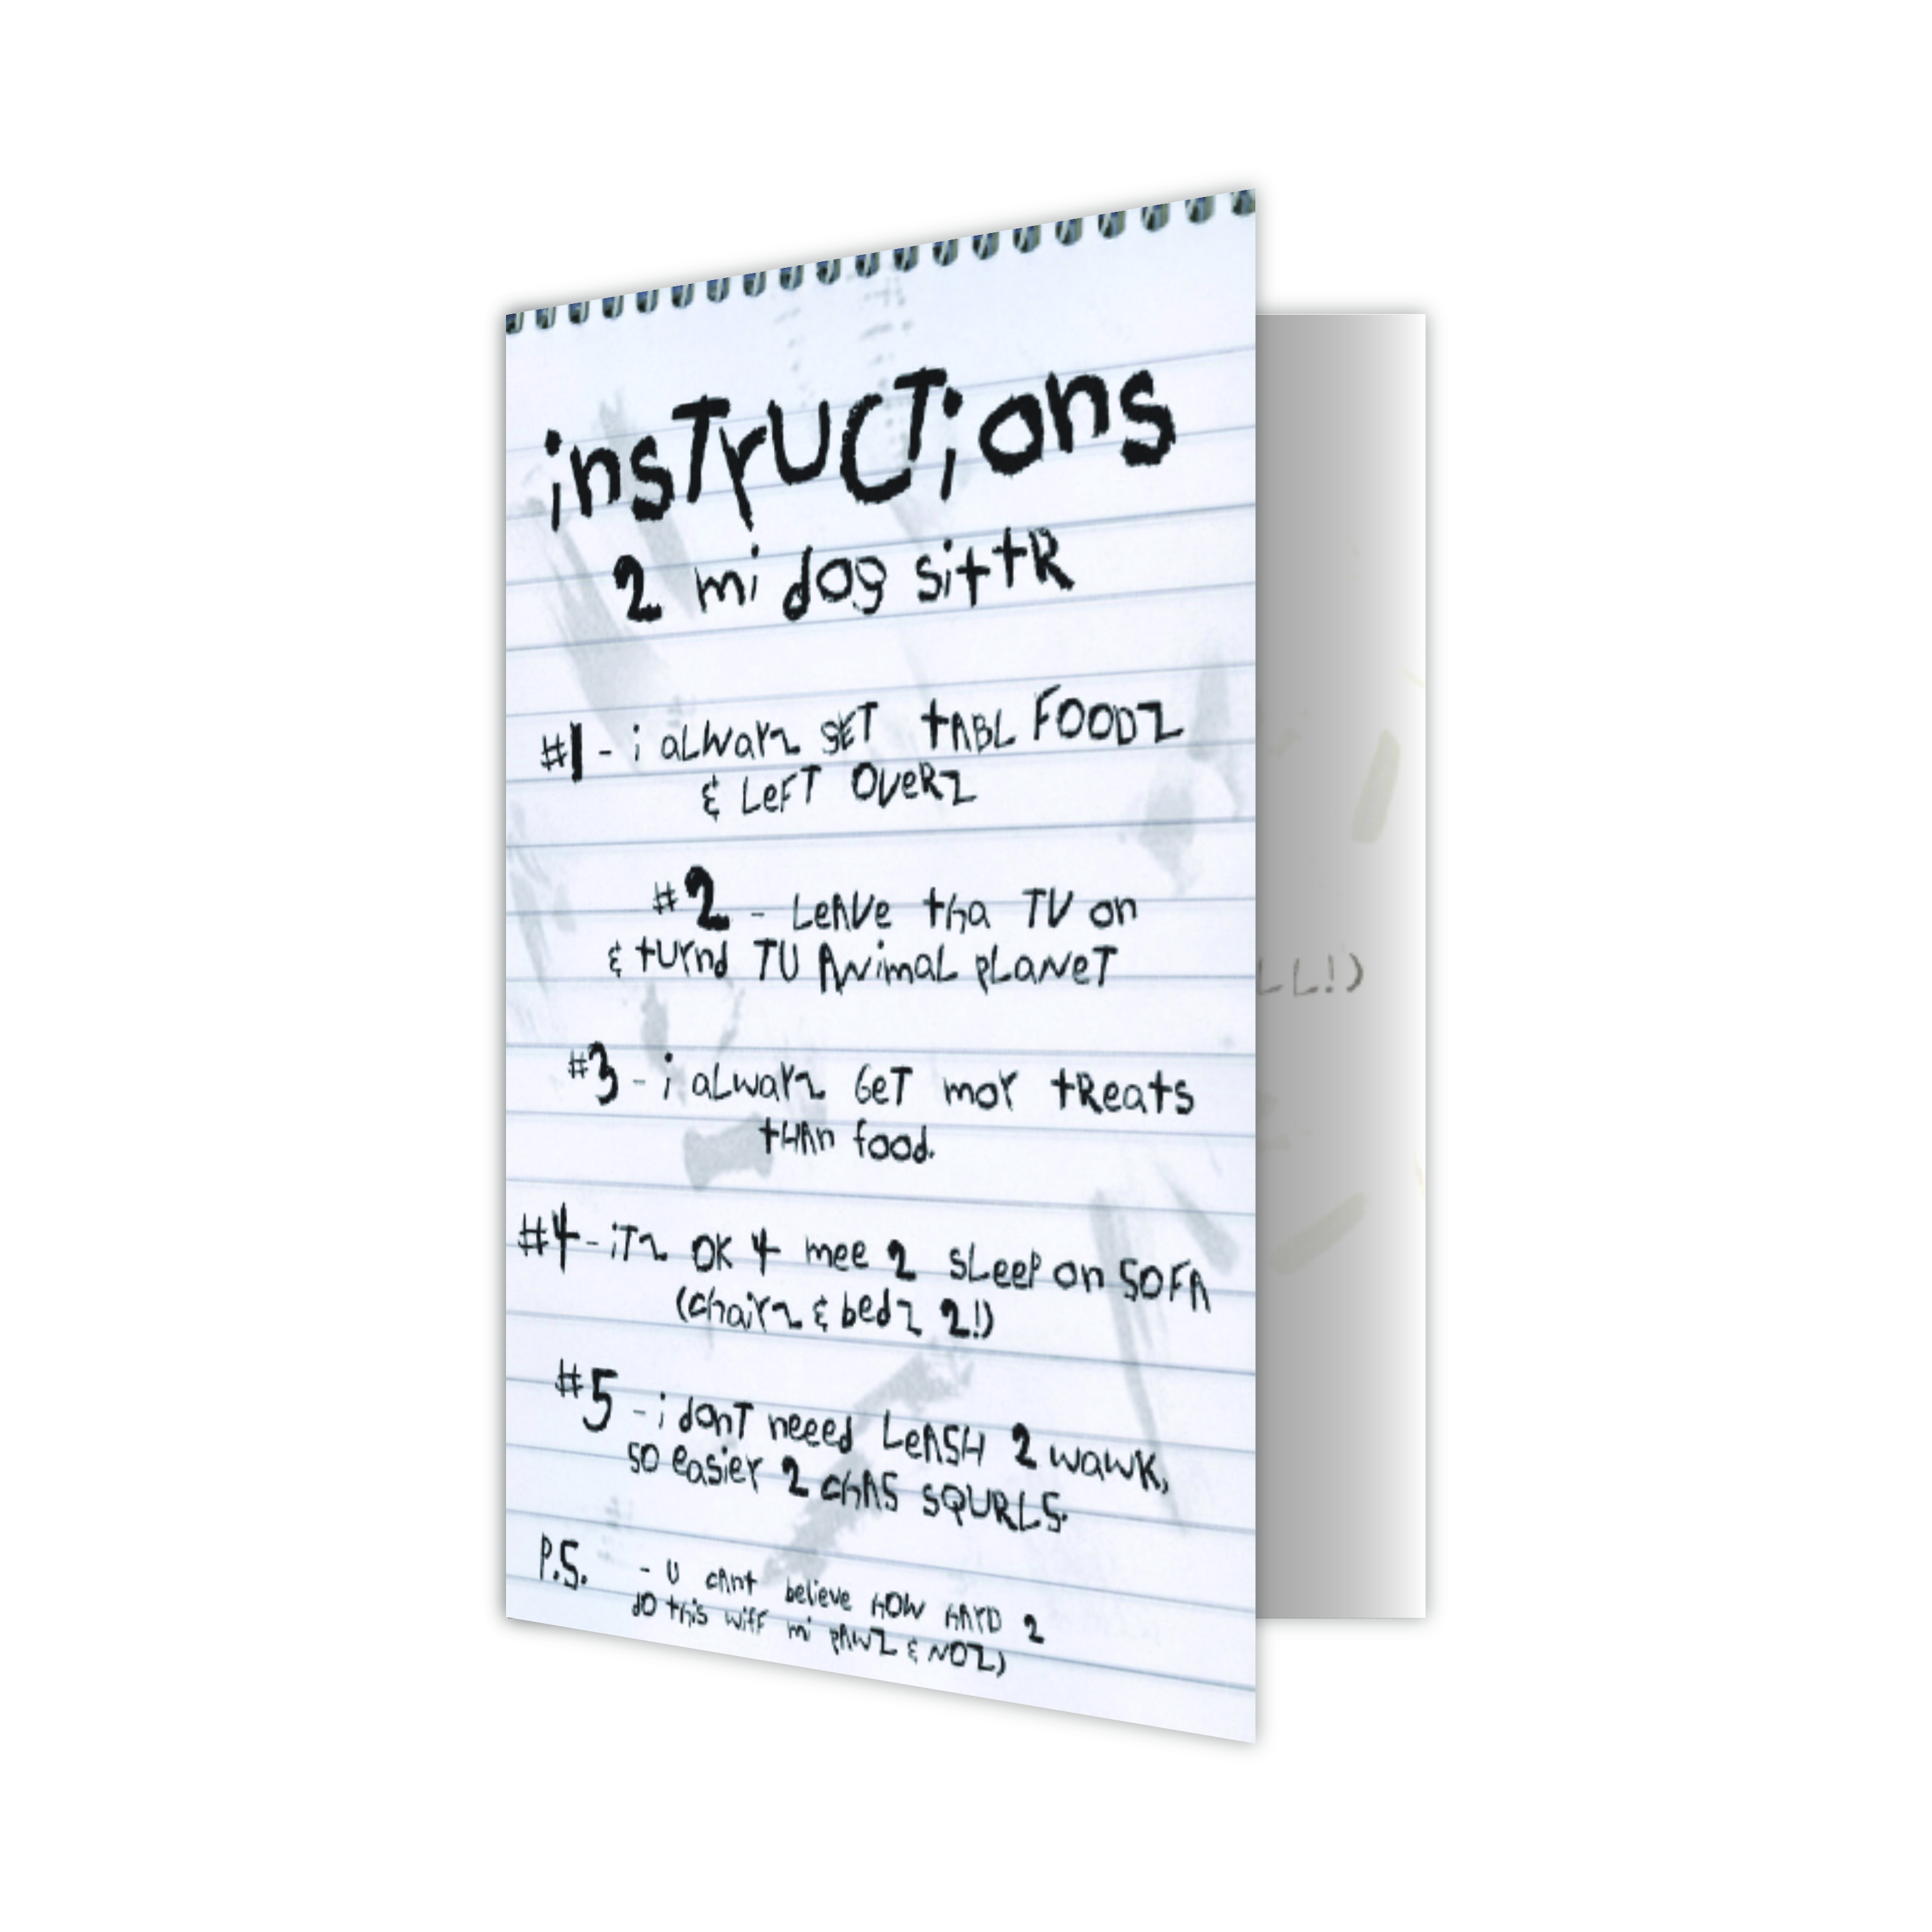 insTrUCTions
2 mi dog sittR
#1 - i aLWarz GET tABL FOODZ
& LeFT OVeRZ
#2 - LeAVe tha TV on
& tUrnd TU ANimaL pLaNeT
#3 - i aLwayz GeT mor tReats
tHAn food.
#4 - iTz OK 4 mee 2 sLeep on SOFA
(chairz & bedz 2!)
#5 - i donT neeed LeASH 2 wawK,
so easier 2 chAS SQURLS.
P.S. - U cAnt believe HOW hArD 2
do this wiff mi pAWZ & NOZ)
LL!)